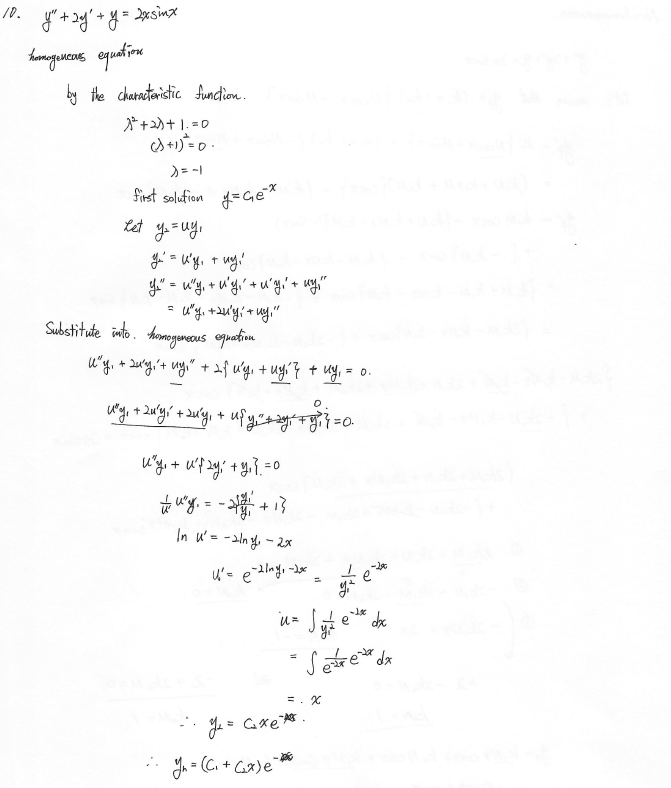 10. y'' + 2y' + y = 2x sin x
homogeneous equation
by the characteristic function.
λ² + 2λ + 1 = 0
(λ+1)² = 0.
λ = -1
first solution y = C₁e^{-x}
Let y₂ = uy₁
y₂' = u'y₁ + uy₁'
y₂'' = u''y₁ + u'y₁' + u'y₁' + uy₁''
= u''y₁ + 2u'y₁' + uy₁''
Substitute into. homogeneous equation
u''y₁ + 2u'y₁' + uy₁'' + 2{u'y₁ + uy₁'} + uy₁ = 0.
u''y₁ + 2u'y₁' + 2u'y₁ + u{y₁'' + 2y₁' + y₁} = 0.
0
u''y₁ + u'{2y₁' + y₁} = 0
1/u' u''y₁ = -2{y₁'/y₁ + 1}
ln u' = -2 ln y₁ - 2x
u' = e^{-2 ln y₁ - 2x} = 1/y₁² e^{-2x}
u = ∫ 1/y₁² e^{-2x} dx
= ∫ 1/e^{-2x} e^{-2x} dx
= . x
∴ y₂ = C₂xe^{-x}.
∴ y_h = (C₁ + C₂x)e^{-x}